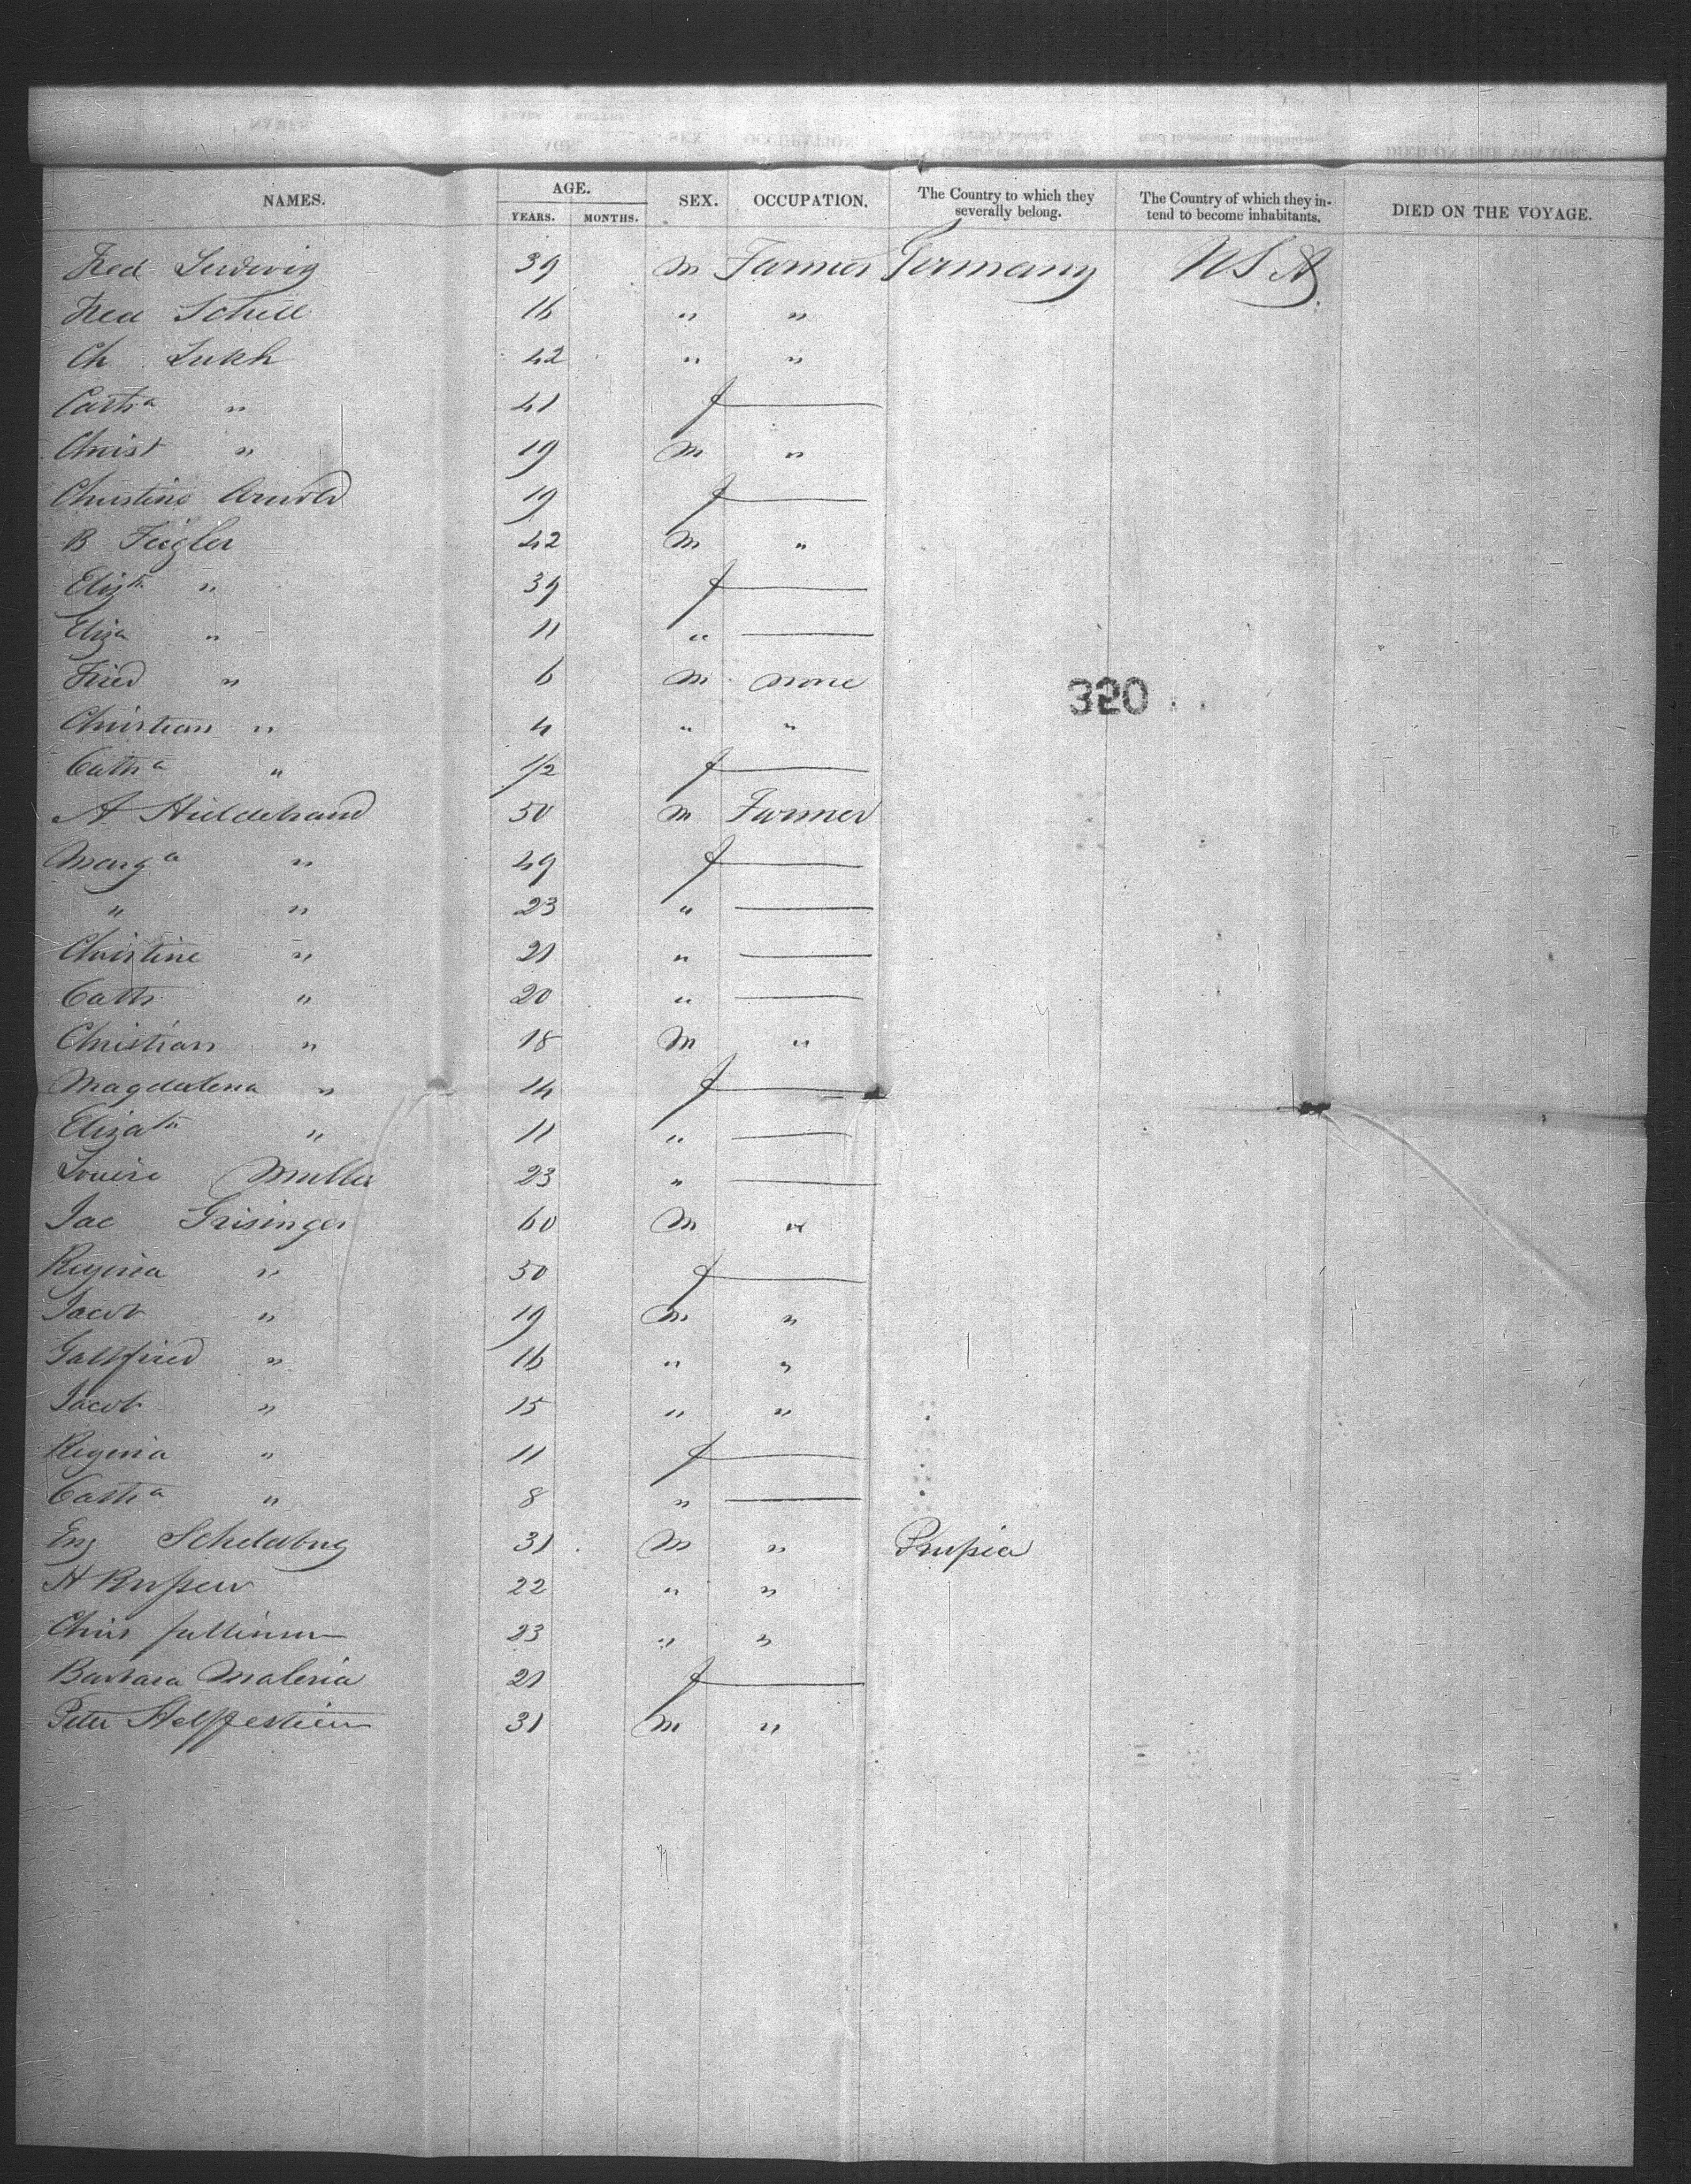 NAMES. AGE. YEARS. MONTHS. SEX. OCCUPATION. The Country to which they severally belong. The Country of which they intend to become inhabitants. DIED ON THE VOYAGE.
Fred Ludwig 39 m Farmer Germany U S A
Fred Schill 16 " "
Ch Lukh 42 " "
Cath a " 41 f
Christ " 19 m "
Christine Arnold 19 f
B Feigler 42 m "
Eliz th " 39 f
Eliza " 11 "
Fried " 6 m none
Christian " 4 " "
Cath a " 1/2 f
A Hildebrand 50 m Farmer
Marg a " 49 f
" " 23 "
Christine " 21 "
Cath " 20 "
Christian " 18 m "
Magdalena " 14 f
Elizath " 11 "
Louise Muller 23 "
Jac Grisinger 60 m "
Regina " 50 f
Jacob " 19 m "
Gottfried " 16 " "
Jacob " 15 " "
Regina " 11 f
Cath a " 8 "
31 m " Prussia
H 22 " "
Chris 23 " "
Barbara Maleria 21 f
Peter Helffestein 31 m "
320